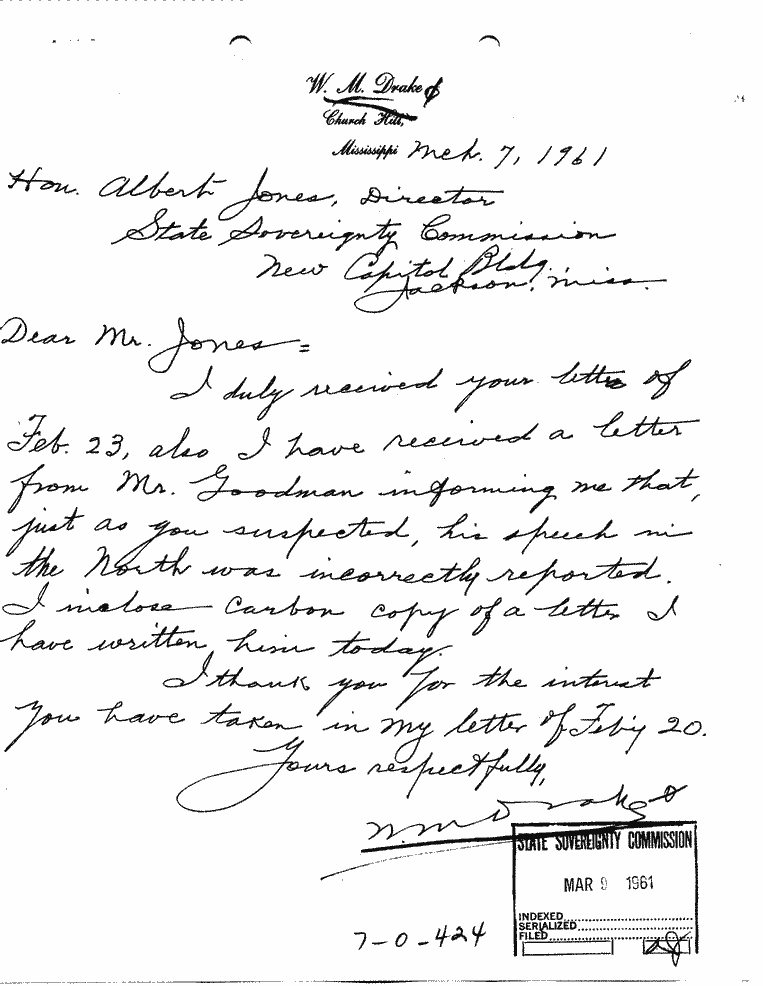 W. M. Drake
Church Hill,
Mississippi Mch. 7, 1961
Hon. Albert Jones, Director
State Sovereignty Commission
New Capitol Bldg.
Jackson, Miss.
Dear Mr. Jones =
I duly received your letter of
Feb. 23, also I have received a letter
from Mr. Goodman informing me that,
just as you suspected, his speech in
the North was incorrectly reported.
I inclose carbon copy of a letter I
have written him today.
I thank you for the interest
you have taken in my letter of Feb'y 20.
Yours respectfully,
W. M. Drake
STATE SOVEREIGNTY COMMISSION
MAR 9 1961
INDEXED
SERIALIZED
FILED
7-0-424